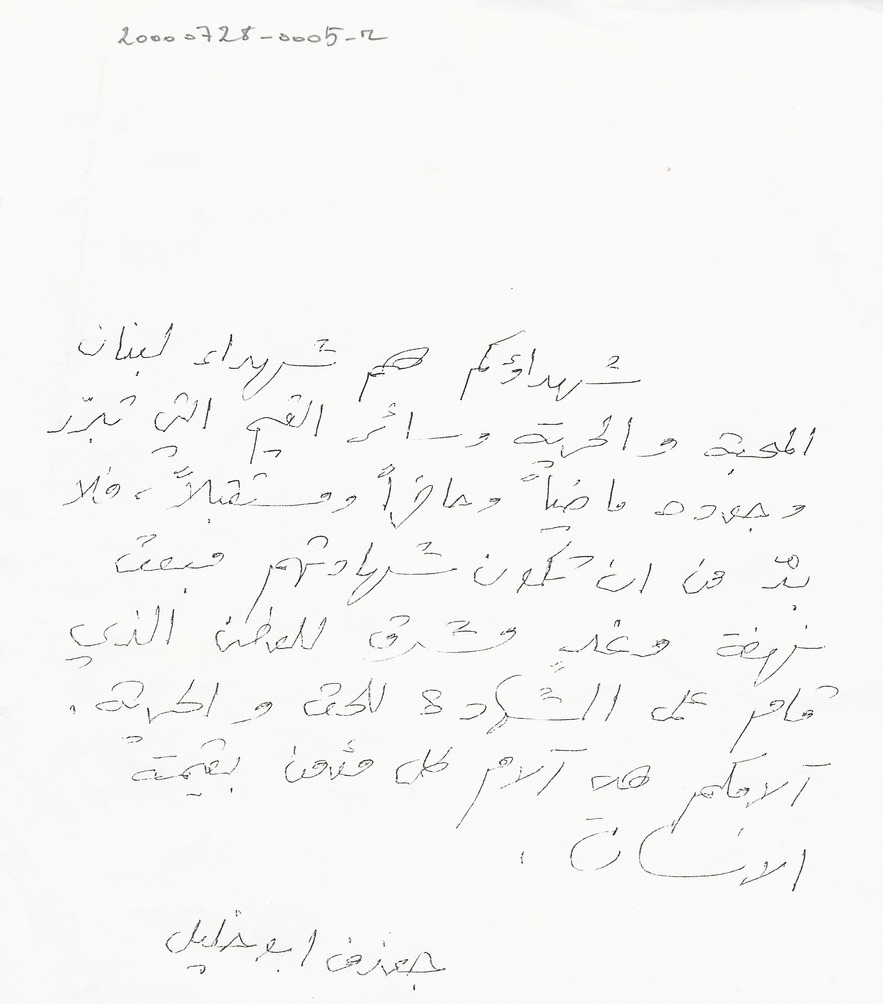 20000728-0005-2
شهداؤكم هم شهداء لبنان
المحبة و الحرية وسائر القيم التي تبرّر
وجوده ماضياً وحاضراً ومستقبلاً، فلا
بدّ من ان تكون شهادتهم مبعث
نهضة وغدٍ مشرق للوطن الذي
قام على الشهادة للحق و الحرية.
آلامكم هي آلام كل مؤمن بقيمة
الانسان.
جوزف ابو خليل